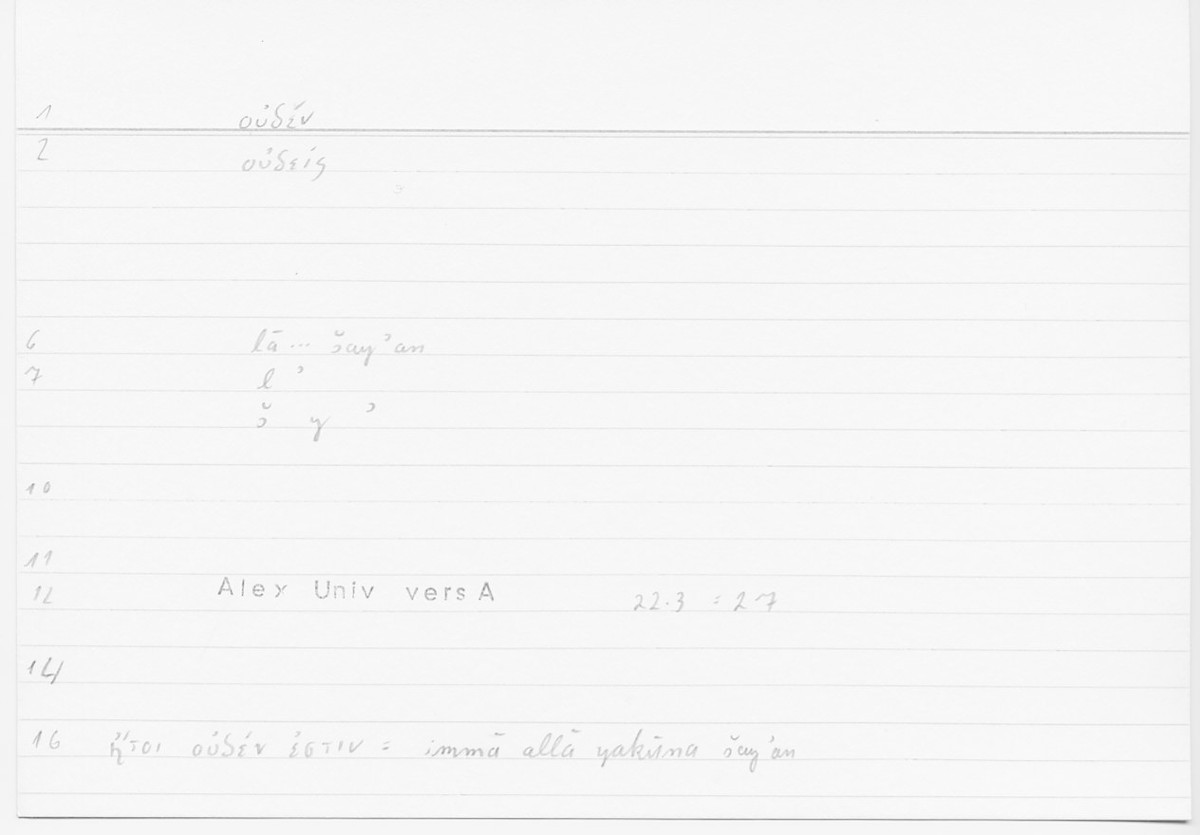 1 οὐδέν
2 οὐδείς
6 lā... šayʾan
7 l ʾ
š y ʾ
10
11
12 Alex Univ vers A 22.3 = 27
14
16 ἤτοι οὐδέν ἐστιν = immā allā yakūna šayʾan